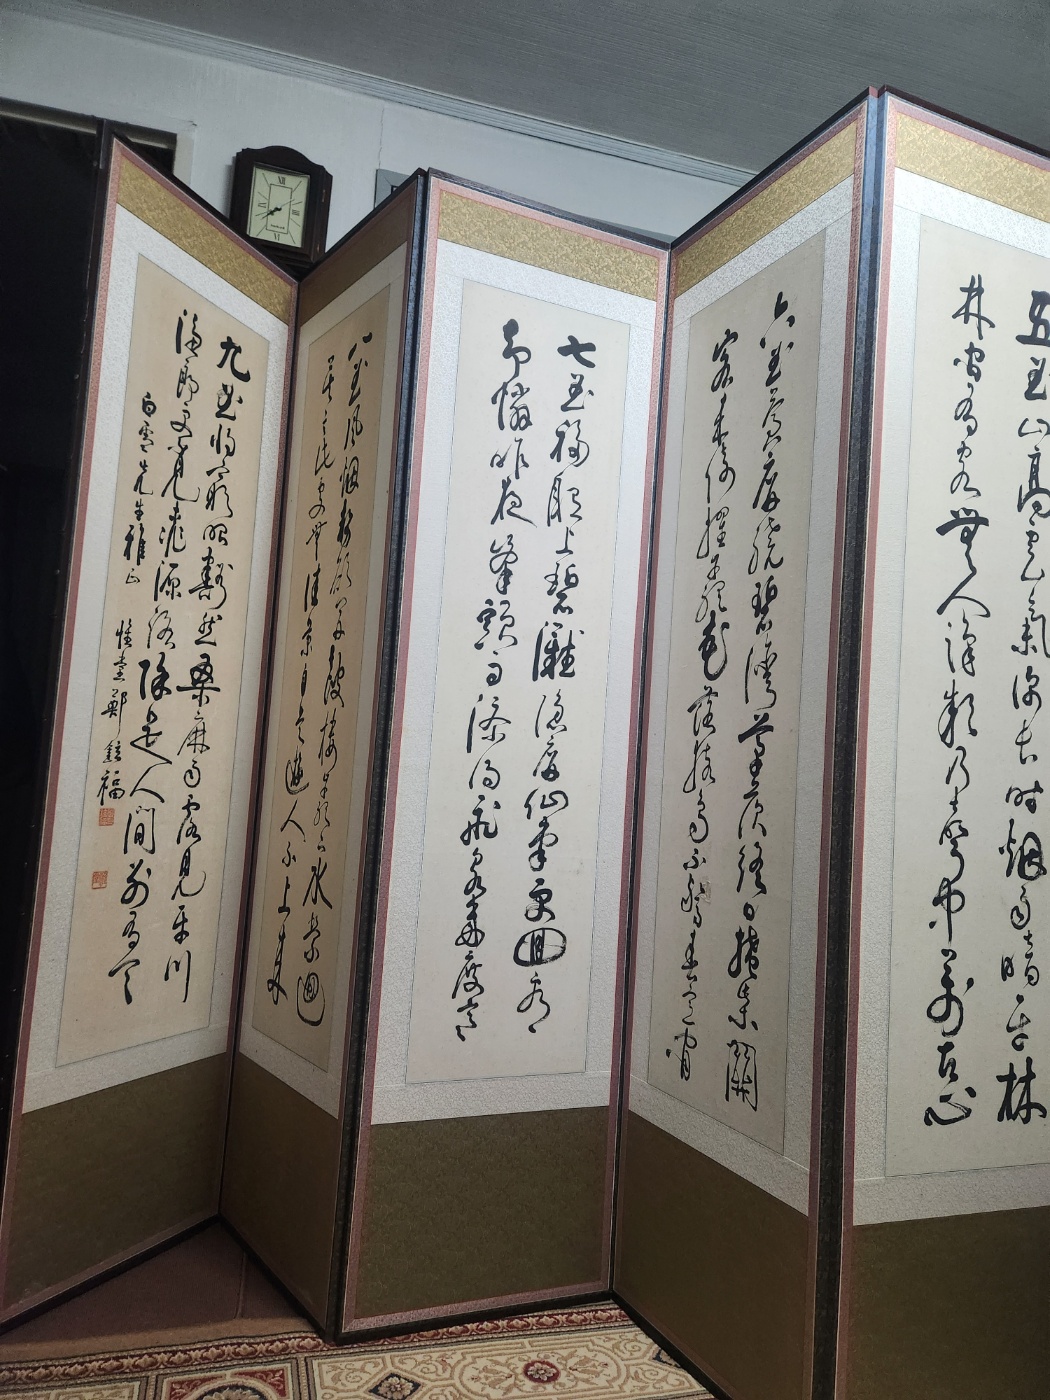 五曲山高雲氣深長時烟雨暗平林
林間有客無人識欸乃聲中萬古心
六曲蒼屛遶碧灣茅茨終日掩柴關
客來倚櫂巖花落猿鳥不驚春意閒
七曲移船上碧灘隱屛仙掌更回看
却憐昨夜峯頭雨添得飛泉幾度寒
八曲風烟勢欲開鼓樓巖下水縈迴
莫言此處無佳景自是遊人不上來
九曲將窮眼豁然桑麻雨露見平川
漁郎更覓桃源路除是人間別有天
白雲先生雅正
堂鄭福